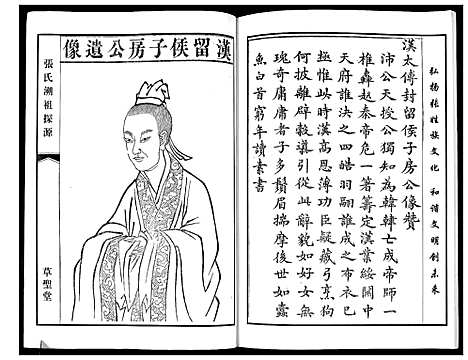 弘扬张姓族文化 和谐文明创未来
漢太傅封留侯子房公像贊
沛公天授公獨知為韓韓亡成帝師一
椎轟赵秦帝危一箸籌定漢業綏關中
天府誰決之四皓羽翮誰成之布衣巳
極惟此時漢高恩薄功臣疑藏弓烹狗
何披離辟穀導引從此辭貌如好女無
瑰奇庸庸者子多鬚眉揣摩後世如蠹
魚白首窮年讀素書
漢留侯子房公遺像
張氏溯祖探源
草聖堂